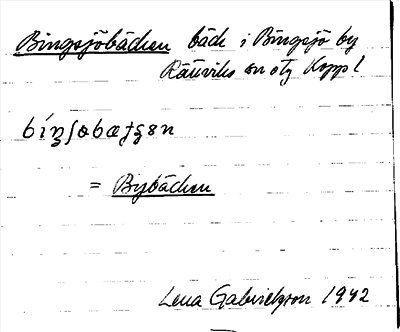 Bingsjöbäcken bäck i Bingsjö by
Rättviks sn o tg Koppl
= Bybäcken
Lena Gabrielsson 1942